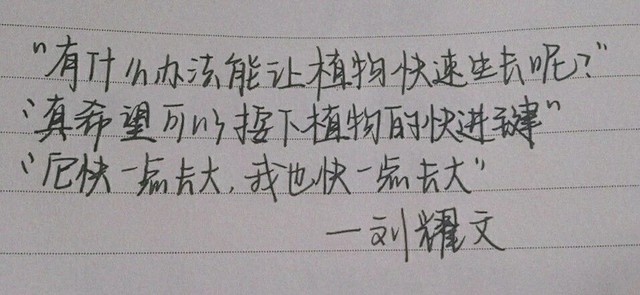 "有什么办法能让植物快速生长呢?"
"真希望可以按下植物的快进键"
"尽快一点长大,我也快一点长大"
—刘耀文